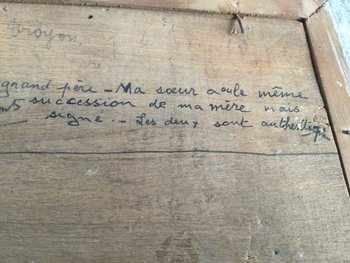 Troyon,
grand père - Ma sœur a le même
succession de ma mère mais
signé. - Les deux sont authentiq